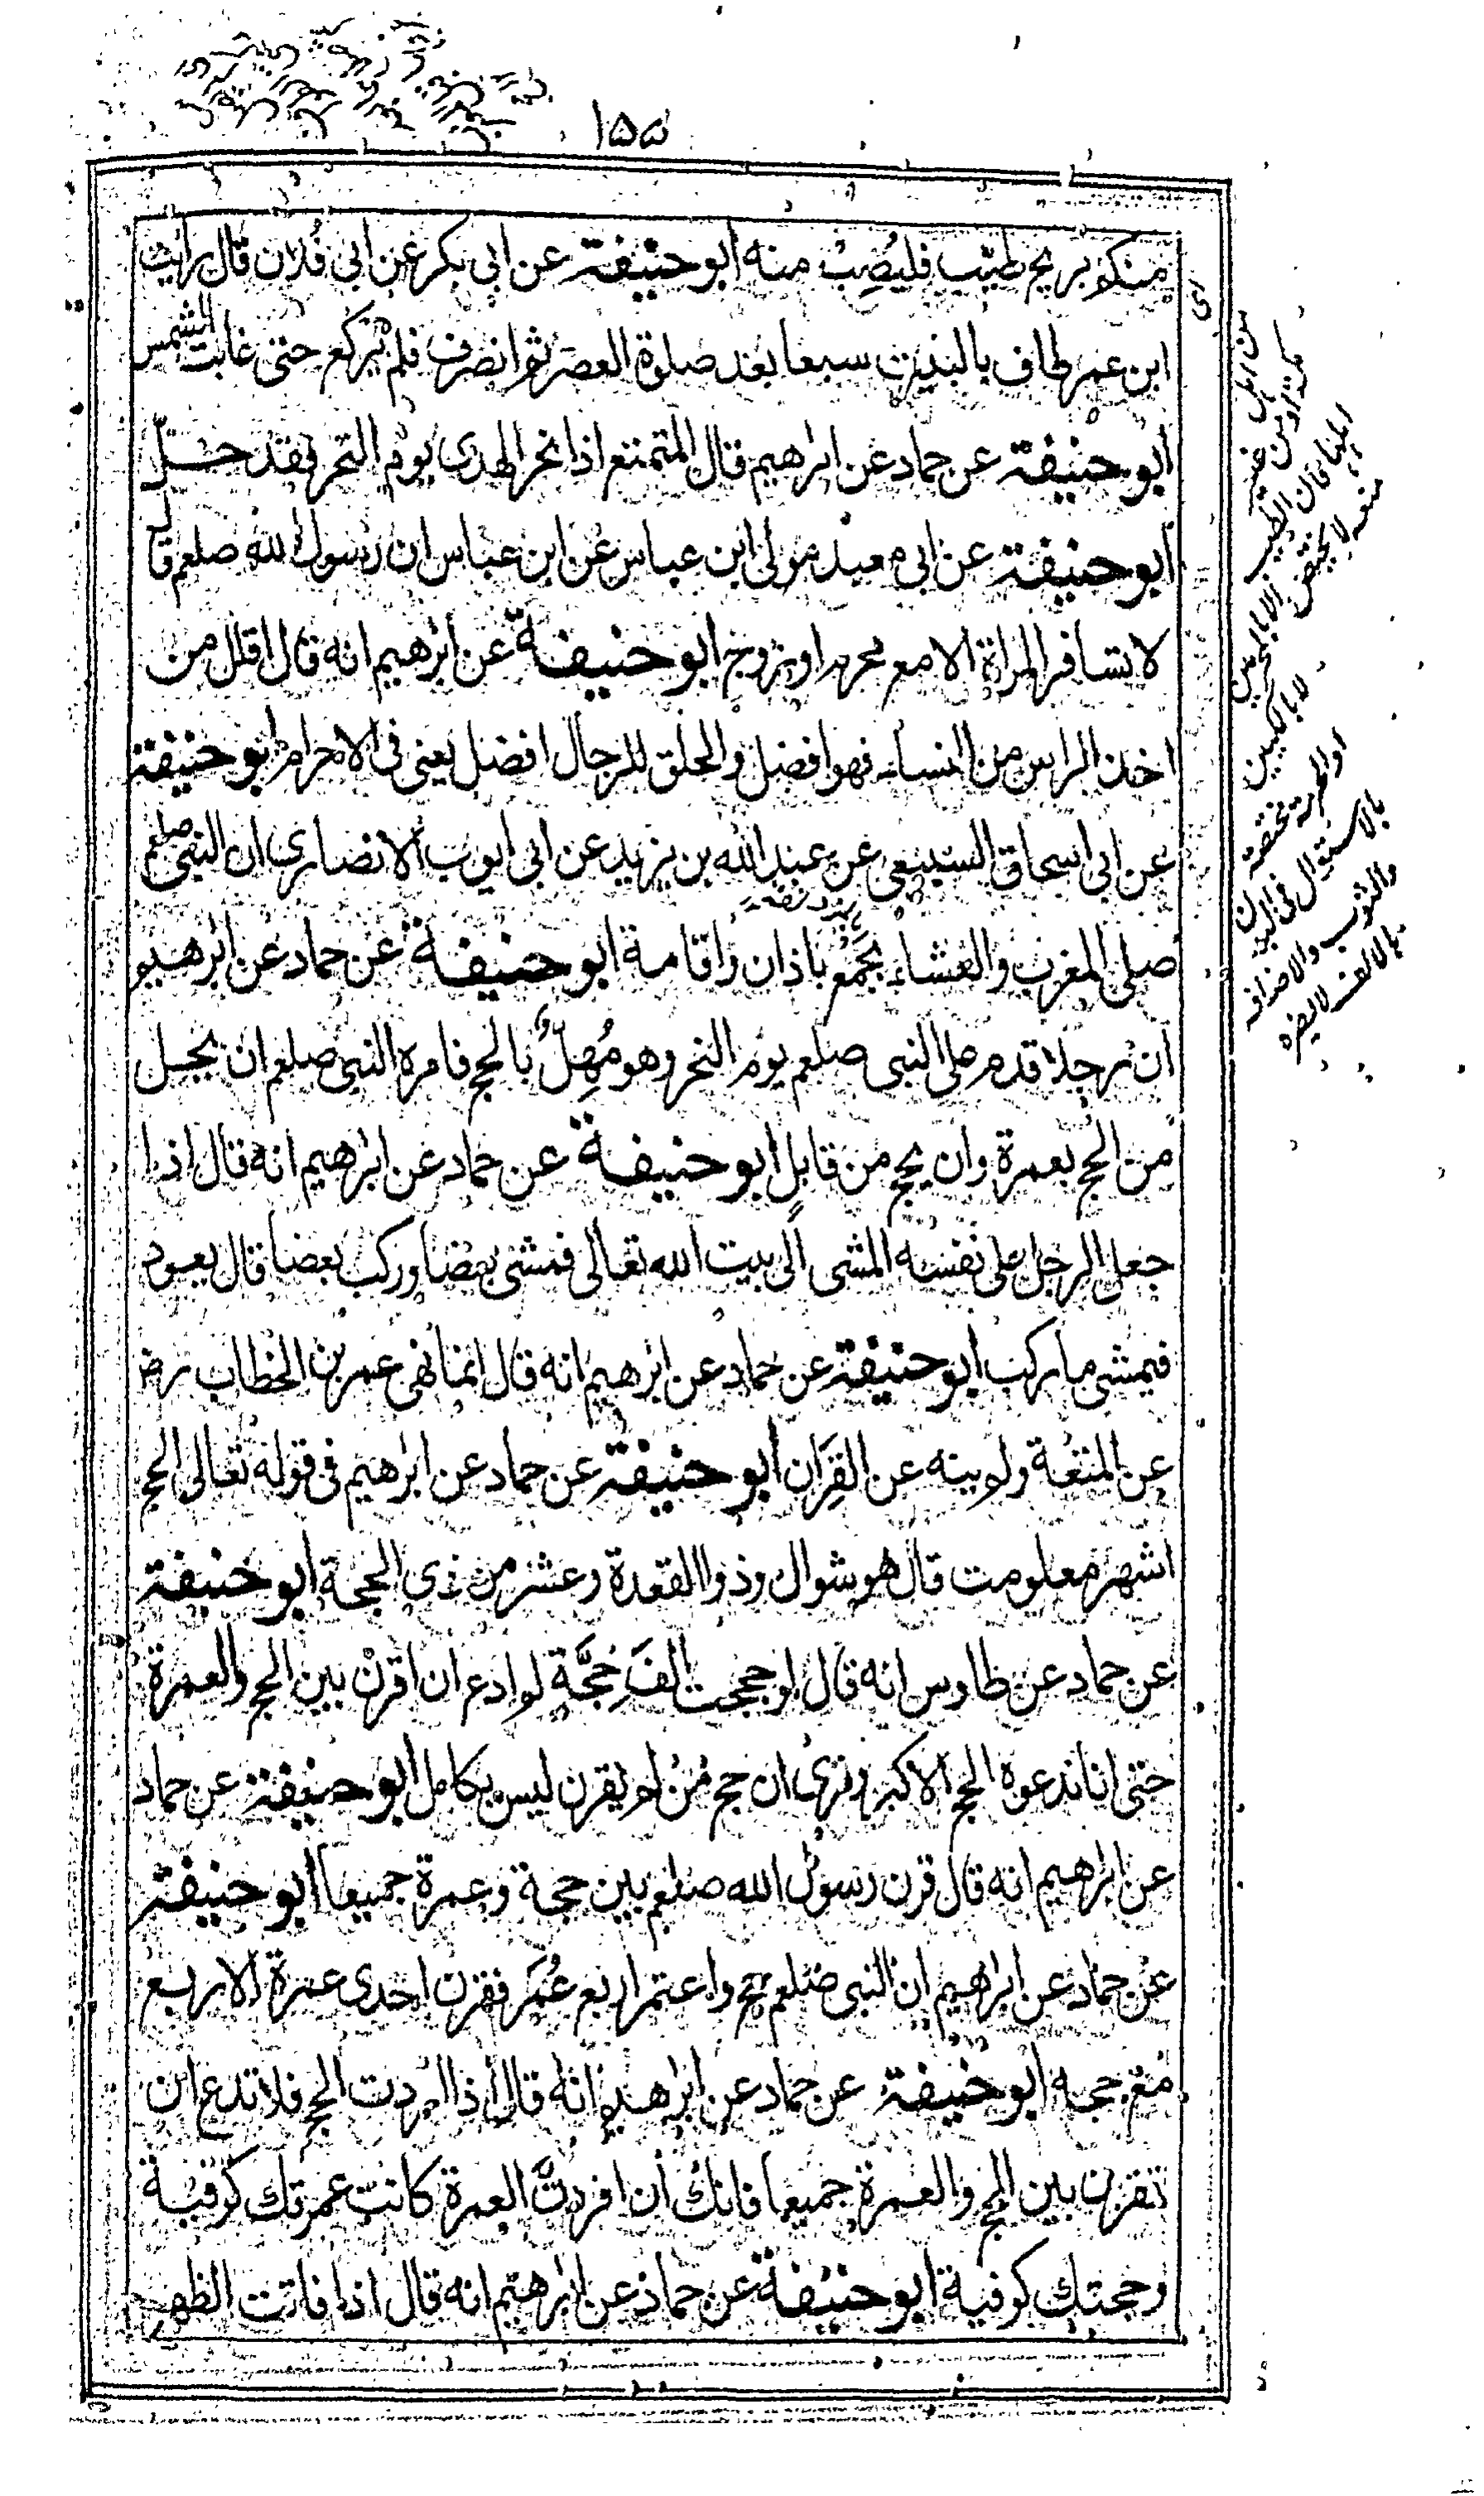 ١٥٥
منكم بريح طيب فليصب منه ابو حنيفة عن ابى بكر عن ابى فُلان قال رايت
ابن عمر طاف بالبيت سبعا بعد صلوة العصر ثم انصرف فلم يركع حتى غابت الشمس
ابو حنيفة عن حماد عن ابرهيم قال المتمتع اذا نحر الهدى يوم النحر فقد حلّ
ابو حنيفة عن ابى معبد مولى ابن عباس عن ابن عباس ان رسول الله صلعم قال
لا تسافر المراة الا مع محرم او زوج ابو حنيفة عن ابرهيم انه قال اقلل من
اخذ الراس من النساء فهو افضل والحلق للرجال افضل يعنى فى الاحرام ابو حنيفة
عن ابى اسحاق السبيعى عن عبد الله بن يزيد عن ابى ايوب الانصارى ان النبى صلعم
صلى المغرب والعشاء بجَمْع باذان واقامة ابو حنيفة عن حماد عن ابرهيم
ان رجلا قدم على النبى صلعم يوم النحر وهو مُهِلٌّ بالحج فامره النبى صلعم ان يحل
من الحج بعمرة وان يحج من قابلٍ ابو حنيفة عن حماد عن ابرهيم انه قال اذا
جعل الرجل على نفسه المشى الى بيت الله تعالى فمشى بعضا وركب بعضا قال يعود
فيمشى ما ركب ابو حنيفة عن حماد عن ابرهيم انه قال انما نهى عمر بن الخطاب رض
عن المتعة ولم ينه عن القِرَان ابو حنيفة عن حماد عن ابرهيم فى قوله تعالى الحج
اشهر معلومت قال هو شوال وذو القعدة وعشر من ذى الحجة ابو حنيفة
عن حماد عن طاوس انه قال لو حججت الفَ حَجَّة لم ادع ان اقرن بين الحج والعمرة
حتى انا ندعوه الحج الاكبر ونرى ان حج من لم يقرن ليس بكامل ابو حنيفة عن حماد
عن ابراهيم انه قال قرن رسول الله صلعم بين حجة وعمرة جميعا ابو حنيفة
عن حماد عن ابراهيم ان النبى صلعم حج واعتمر اربع عُمَر فقرن احدى عمرة الاربع
مع حجه ابو حنيفة عن حماد عن ابرهيم انه قال اذا اردت الحج فلا تدع ان
تقرن بين الحج والعمرة جميعا فانك ان افردتَّ العمرة كانت عمرتك كوفية
وحجتك كوفية ابو حنيفة عن حماد عن ابرهيم انه قال اذا فاتت الظهر